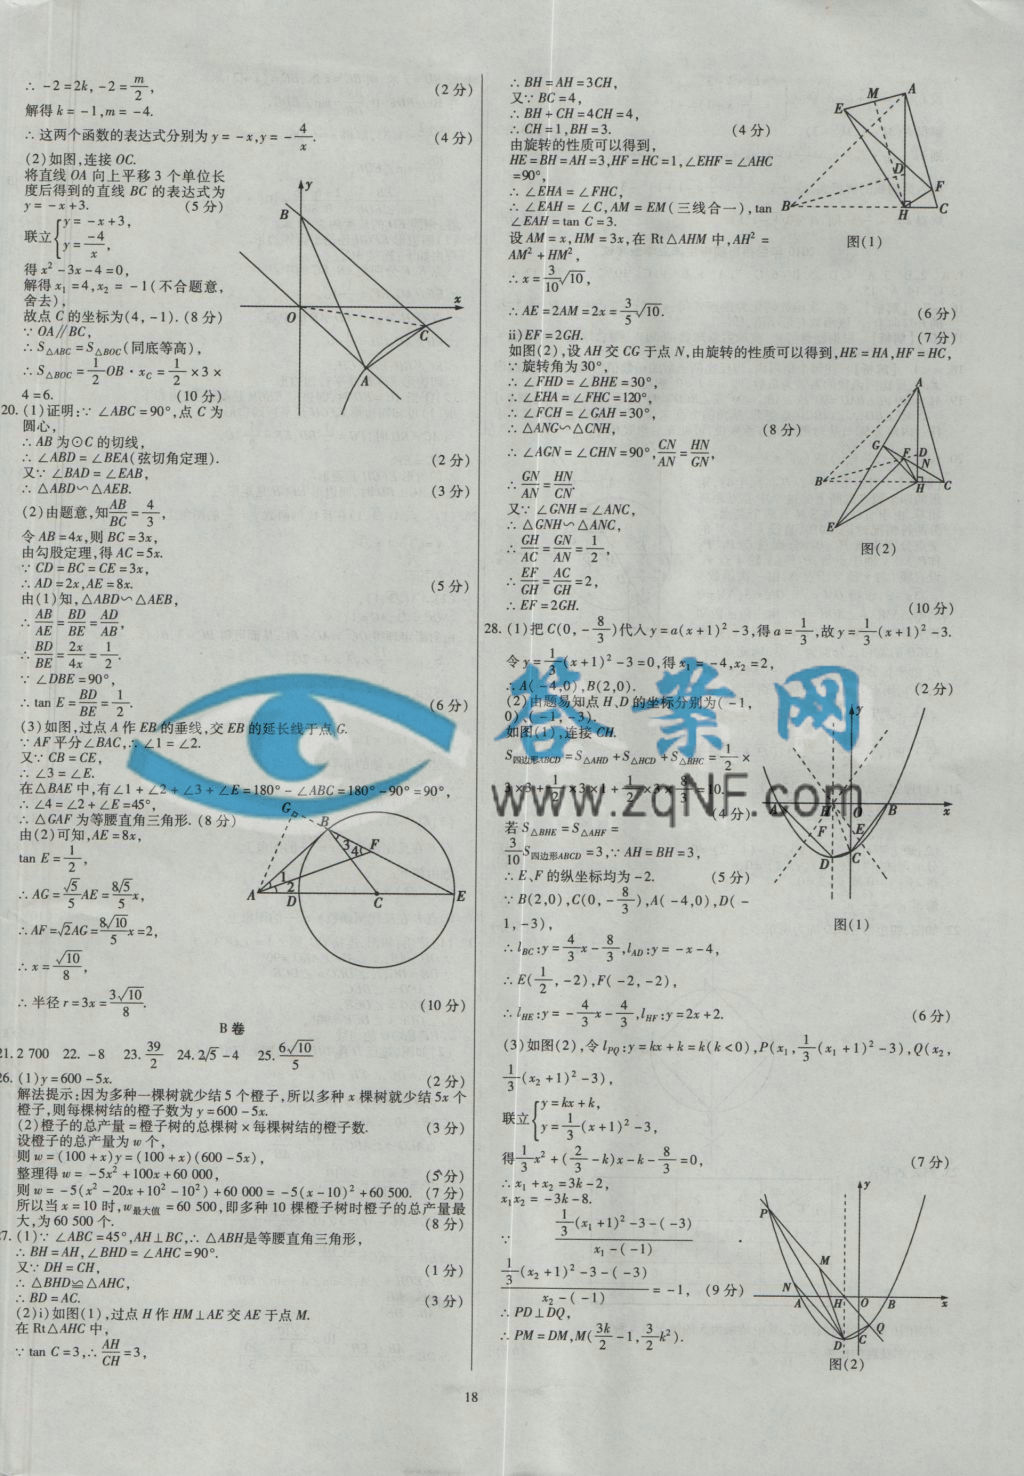 ∴ -2=2k, -2=m/2, (2分)
解得 k=-1,m=-4.
∴ 这两个函数的表达式分别为 y=-x,y=-4/x. (4分)
(2)如图,连接 OC.
将直线 OA 向上平移 3 个单位长
度后得到的直线 BC 的表达式为
y=-x+3. (5分)
联立{y=-x+3, y=-4/x,
得 x²-3x-4=0,
解得 x₁=4,x₂=-1(不合题意,
舍去),
故点 C 的坐标为(4,-1). (8分)
∵ OA∥BC,
∴ S△ABC=S△BOC(同底等高),
∴ S△BOC=1/2 OB·x_C=1/2×3×
4=6. (10分)
20.(1)证明:∵ ∠ABC=90°,点 C 为
圆心,
∴ AB 为⊙C 的切线,
∴ ∠ABD=∠BEA(弦切角定理). (2分)
又∵ ∠BAD=∠EAB,
∴ △ABD∽△AEB. (3分)
(2)由题意,知AB/BC=4/3,
令 AB=4x,则 BC=3x,
由勾股定理,得 AC=5x.
∵ CD=BC=CE=3x,
∴ AD=2x,AE=8x. (5分)
由(1)知,△ABD∽△AEB,
∴ AB/AE=BD/BE=AD/AB,
∴ BD/BE=2x/4x=1/2.
∵ ∠DBE=90°,
∴ tan E=BD/BE=1/2. (6分)
(3)如图,过点 A 作 EB 的垂线,交 EB 的延长线于点 G.
∵ AF 平分∠BAC,∴ ∠1=∠2.
又∵ CB=CE,
∴ ∠3=∠E.
在△BAE 中,有∠1+∠2+∠3+∠E=180°-∠ABC=180°-90°=90°,
∴ ∠4=∠2+∠E=45°,
∴ △GAF 为等腰直角三角形. (8分)
由(2)可知,AE=8x,
tan E=1/2,
∴ AG=√5/5 AE=8√5/5 x,
∴ AF=√2AG=8√10/5 x=2,
∴ x=√10/8,
∴ 半径 r=3x=3√10/8. (10分)
B 卷
21. 2 700 22. -8 23. 39/2 24. 2√5-4 25. 6√10/5
26.(1)y=600-5x. (2分)
解法提示:因为多种一棵树就少结 5 个橙子,所以多种 x 棵树就少结 5x 个
橙子,则每棵树结的橙子数为 y=600-5x.
(2)橙子的总产量=橙子树的总棵树×每棵树结的橙子数. (3分)
设橙子的总产量为 w 个,
则 w=(100+x)y=(100+x)(600-5x),
整理得 w=-5x²+100x+60 000, (5分)
则 w=-5(x²-20x+10²-10²)+60 000=-5(x-10)²+60 500. (7分)
所以当 x=10 时,w最大值=60 500,即多种 10 棵橙子树时橙子的总产量最
大,为 60 500 个. (8分)
27.(1)∵ ∠ABC=45°,AH⊥BC,∴ △ABH是等腰直角三角形,
∴ BH=AH,∠BHD=∠AHC=90°.
又∵ DH=CH, (1分)
∴ △BHD≌△AHC,
∴ BD=AC. (3分)
(2)i)如图(1),过点 H 作 HM⊥AE 交 AE 于点 M.
在 Rt△AHC 中,
∵ tan C=3,∴ AH/CH=3,
∴ BH=AH=3CH,
又∵ BC=4,
∴ BH+CH=4CH=4,
∴ CH=1,BH=3. (4分)
由旋转的性质可以得到,
HE=BH=AH=3,HF=HC=1,∠EHF=∠AHC
=90°,
∴ ∠EHA=∠FHC,
∴ ∠EAH=∠C,AM=EM(三线合一),tan
∠EAH=tan C=3.
设 AM=x,HM=3x,在 Rt△AHM 中,AH²=
AM²+HM²,
∴ x=3/10 √10,
∴ AE=2AM=2x=3/5 √10. (6分)
ii)EF=2GH. (7分)
如图(2),设 AH 交 CG 于点 N,由旋转的性质可以得到,HE=HA,HF=HC,
∵ 旋转角为 30°,
∴ ∠FHD=∠BHE=30°,
∴ ∠EHA=∠FHC=120°,
∴ ∠FCH=∠GAH=30°,
∴ △ANG∽△CNH, (8分)
∴ ∠AGN=∠CHN=90°,CN/AN=HN/GN,
∴ GN/AN=HN/CN.
又∵ ∠GNH=∠ANC,
∴ △GNH∽△ANC,
∴ GH/AC=GN/AN=1/2,
∴ EF/GH=AC/GH=2,
∴ EF=2GH. (10分)
图(1)
图(2)
28.(1)把 C(0,-8/3)代入 y=a(x+1)²-3,得 a=1/3,故 y=1/3(x+1)²-3.
令 y=1/3(x+1)²-3=0,得 x₁=-4,x₂=2,
∴ A(-4,0),B(2,0). (2分)
(2)由题易知点 H、D 的坐标分别为(-1,
0)、(-1,-3).
如图(1),连接 CH.
S四边形ABCD=S△AHD+S△HCD+S△BHC=1/2×
3×3+1/2×3×1+1/2×3×8/3=10. (4分)
若 S△BHE=S△AHF=
3/10 S四边形ABCD=3,∵ AH=BH=3,
∴ E、F 的纵坐标均为-2. (5分)
∵ B(2,0),C(0,-8/3),A(-4,0),D(-
1,-3),
∴ l_BC:y=4/3 x-8/3,l_AD:y=-x-4,
∴ E(1/2,-2),F(-2,-2),
∴ l_HE:y=-4/3 x-4/3,l_HF:y=2x+2. (6分)
图(1)
(3)如图(2),令 l_PQ:y=kx+k=k(k<0),P(x₁,1/3(x₁+1)²-3),Q(x₂,
1/3(x₂+1)²-3),
联立{y=kx+k, y=1/3(x+1)²-3,
得 1/3 x²+(2/3-k)x-k-8/3=0, (7分)
∴ x₁+x₂=3k-2,
x₁x₂=-3k-8.
∵ [1/3(x₁+1)²-3-(-3)]/[x₁-(-1)] ·
[1/3(x₂+1)²-3-(-3)]/[x₂-(-1)]=-1, (9分)
∴ PD⊥DQ,
∴ PM=DM,M(3k/2-1,3/2 k²).
图(2)
18
答案网
www.zqNF.com